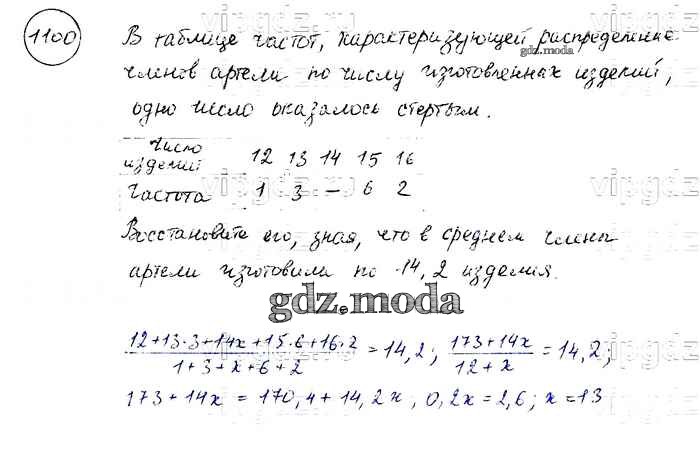 1100
В таблице частот, характеризующей распределение
gdz.moda
членов артели по числу изготовленных изделий,
одно число оказалось стертым.
Число изделий 12 13 14 15 16
Частота 1 3 — 6 2
Восстановите его, зная, что в среднем члены
артели изготовили по 14,2 изделия.
gdz.moda
(12+13·3+14x+15·6+16·2)/(1+3+x+6+2) = 14,2; (173+14x)/(12+x) = 14,2;
173+14x = 170,4+14,2x, 0,2x=2,6; x=13